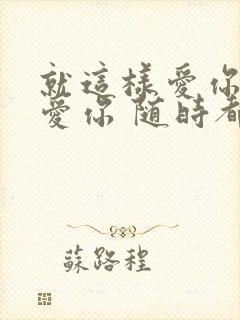 就這樣愛你
愛你 随時都
蘇路程